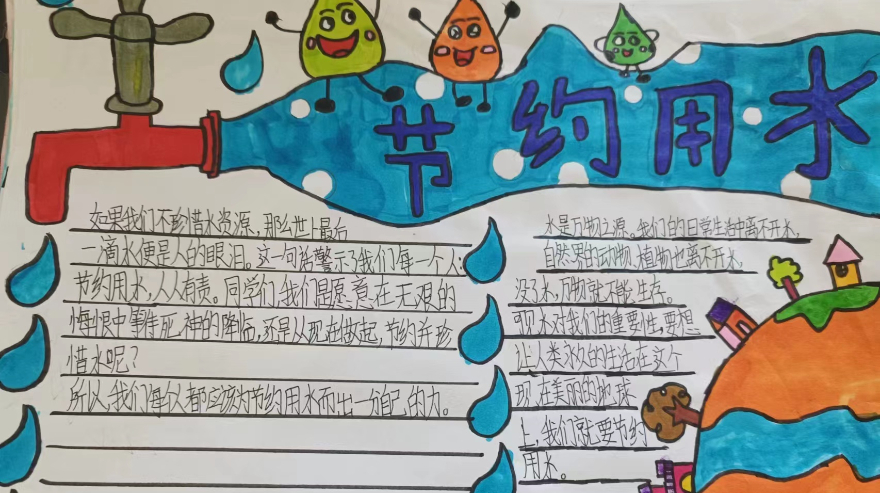 节约用水
如果我们不珍惜水资源，那么世上最后
一滴水便是人的眼泪。这一句话警示了我们每一个人：
节约用水，人人有责。同学们，我们是愿意在无艰的
悔恨中等待死神的降临，还是从现在做起，节约并珍
惜水呢？
所以，我们每个人都应该为节约用水而出一分自己的力。
水是万物之源。我们的日常生活中离不开水，
自然界的动物、植物也离不开水，
没了水，万物就不能生存。
可现水对我们的重要性，要想
让人类永久的生活在这个
现在美丽的地球
上，我们就要节约
用水。